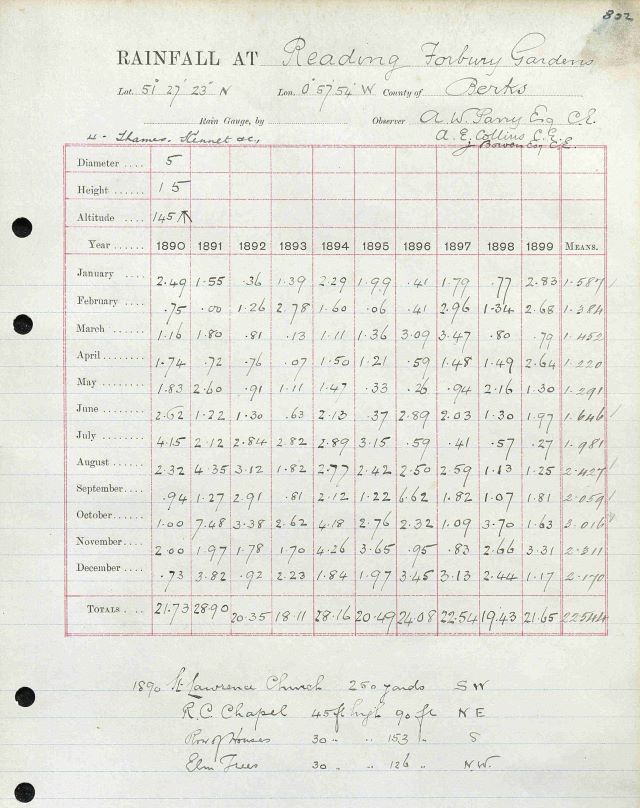 802
RAINFALL AT Reading Forbury Gardens
Lat. 51° 27' 23" N Lon. 0° 57' 54" W County of Berks
Rain Gauge, by Observer A. W. Parry Esq C.E.
4 - Thames, Kennet &c, A. E. Collins C.E.
J. Bowen Esq C.E.
Diameter .... 5
Height ...... 1 5
Altitude .... 145
Year ...... 1890 1891 1892 1893 1894 1895 1896 1897 1898 1899 MEANS.
January ..... 2.49 1.55 .36 1.39 2.29 1.99 .41 1.79 .77 2.83 1.587
February ..... .75 .00 1.26 2.78 1.60 .06 .41 2.96 1.34 2.68 1.384
March ...... 1.16 1.80 .81 .13 1.11 1.36 3.09 3.47 .80 .79 1.452
April ........ 1.74 .72 .76 .07 1.50 1.21 .59 1.48 1.49 2.64 1.220
May ........ 1.83 2.60 .91 1.11 1.47 .33 .26 .94 2.16 1.30 1.291
June ........ 2.62 1.22 1.30 .63 2.13 .37 2.89 2.03 1.30 1.97 1.646
July ........ 4.15 2.12 2.84 2.82 2.89 3.15 .59 .41 .57 .27 1.981
August ...... 2.32 4.35 3.12 1.82 2.77 2.42 2.50 2.59 1.13 1.25 2.427
September .... .94 1.27 2.91 .81 2.12 1.22 6.62 1.82 1.07 1.81 2.059
October ...... 1.00 7.48 3.38 2.62 4.18 2.76 2.32 1.09 3.70 1.63 3.016
November .... 2.00 1.97 1.78 1.70 4.26 3.65 .95 .83 2.66 3.31 2.311
December .... .73 3.82 .92 2.23 1.84 1.97 3.45 3.13 2.44 1.17 2.170
TOTALS .... 21.73 28.90 20.35 18.11 28.16 20.49 24.08 22.54 19.43 21.65 22.544
1890 St Lawrence Church 250 yards S W
R.C. Chapel 45 ft high 90 ft N E
Row of Houses 30 " " 153 " S
Elm Trees 30 " " 126 " N.W.